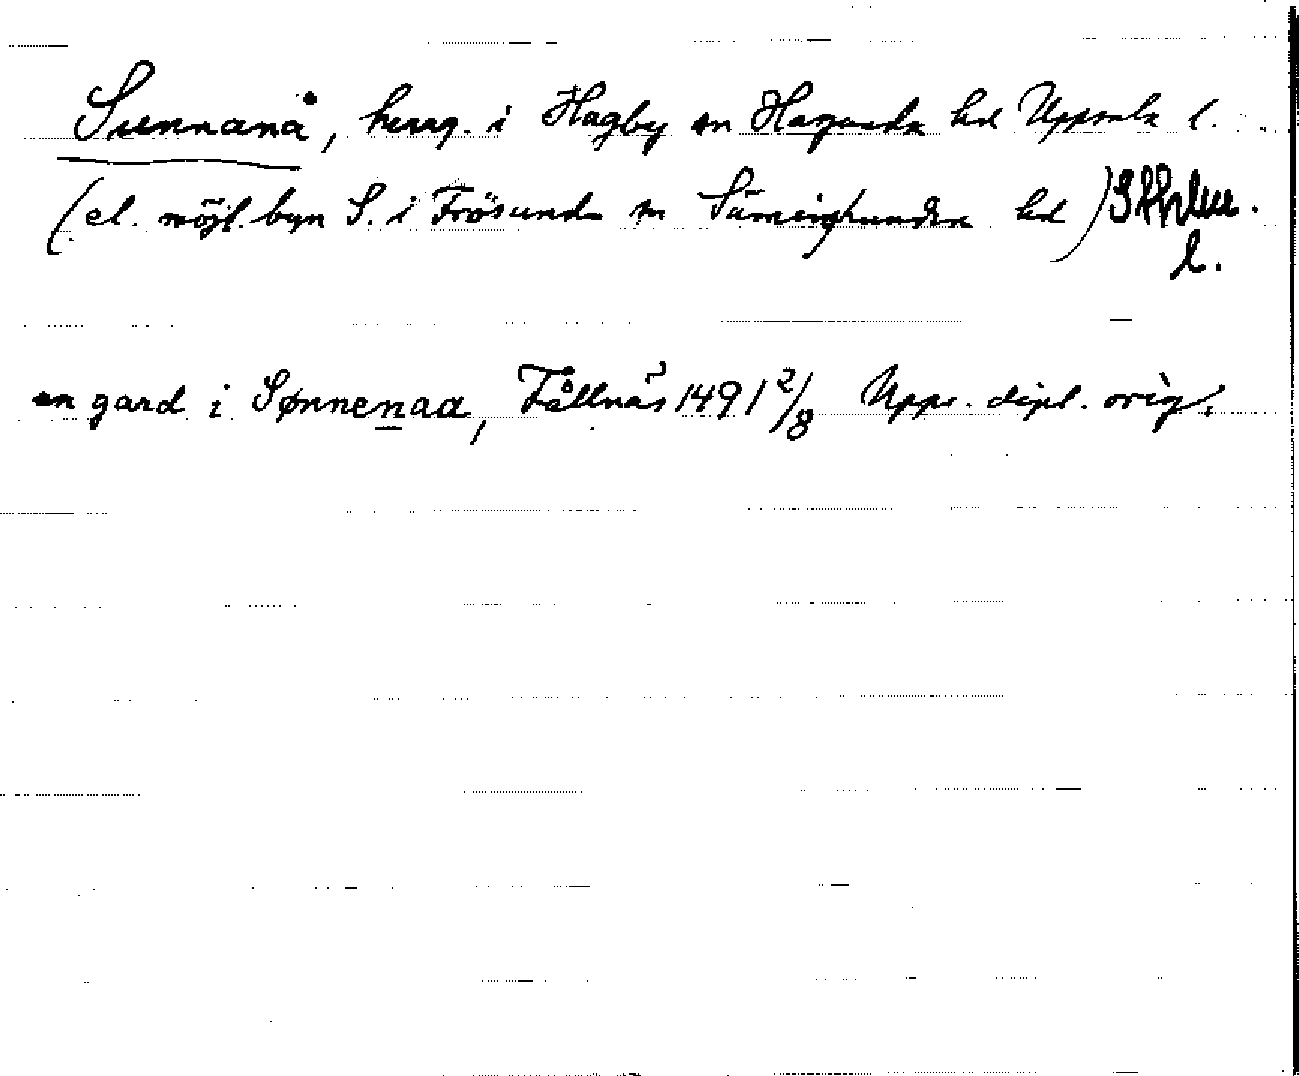 Sunnanå, herrg. i Hagby sn Hagunda hd Uppsala l.
(el. möjl. byn S. i Frösunda sn Seminghundra hd) Sthlm.
l.
en gard i Sønnenaa, Fållnäs 1491 2/8 Upps. dipl. orig.